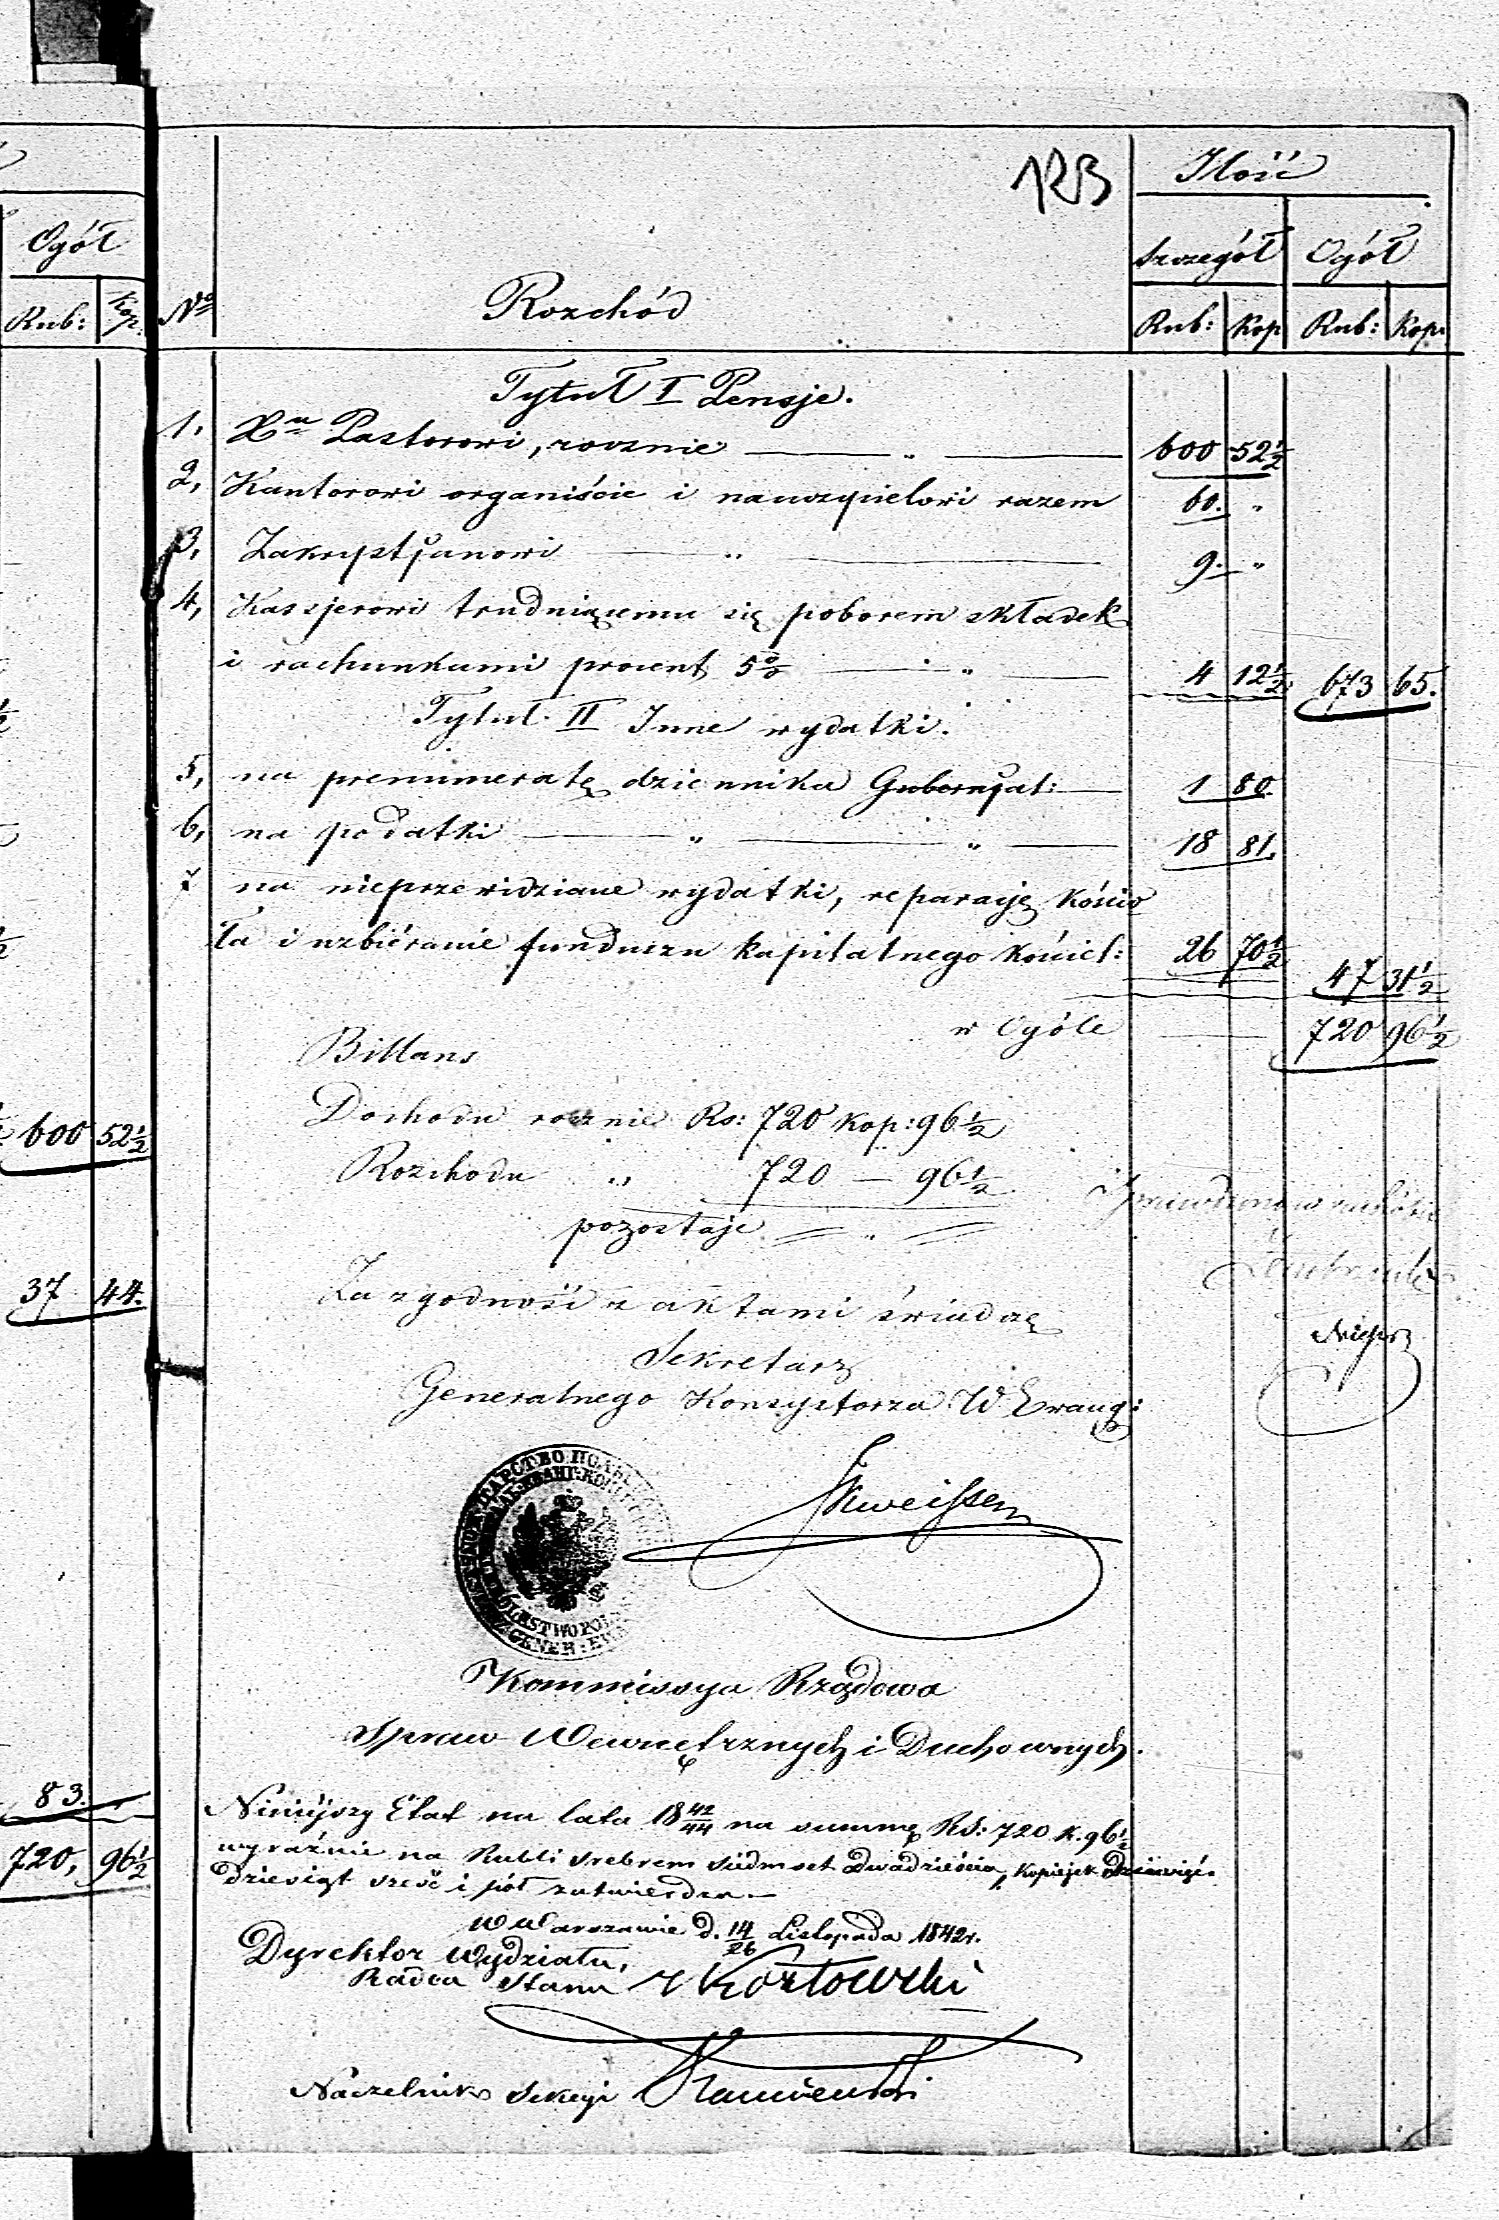 Ogół
Rub: Kop.
600 52½
37 44.
83.
720, 96½
123
Ilość
Szczegół Ogół
Nº Rozchód Rub: Kop Rub: Kop:
Tytuł I Pensje.
1, Xu Pastorowi, rocznie — „ — 600 52½
2, Kantorowi organiście i nauczycielowi razem 60. „
3, Zakrystjanowi — „ — 9. „
4, Kassjerowi trudniącemu się poborem składek
i rachunkami procent 5% — „ — 4 12½ 673 65.
Tytuł II Inne wydatki.
5, na prenumeratę dziennika Gubernjal: — 1 80.
6, na podatki — „ — „ — 18 81.
7 na nieprzewidziane wydatki, reparacje kościo
ła i uzbiéranie funduszu kapitalnego kościel: 26 70½
47 31½
w Ogóle — 720 96½
Billans
Dochodu rocznie Rs: 720 kop: 96½
Rozchodu „ 720 — 96½
pozostaje — „ —
Za zgodność z aktami świadczę
Sekretarz
Generalnego Konsystorza W Ewang:
КОНСИСТОРІЯ ЦАРСТВО ПОЛЬСК
KRÓLESTWO POL
GENER: EWA
Kommissya Rządowa
Spraw Wewnętrznych i Duchownych.
Niniejszy Etat na lata 18 42/44 na summę RS: 720 k. 96½
wyraźnie na Rubli srebrem siedmset dwadzieścia, kopiejek dziewięć-
dziesiąt sześć i pół zatwierdza. —
w Warszawie d. 14/26 Listopada 1842 r.
Dyrektor Wydziału,
Radca Stanu Kozłowski
Naczelnik Sekcyi